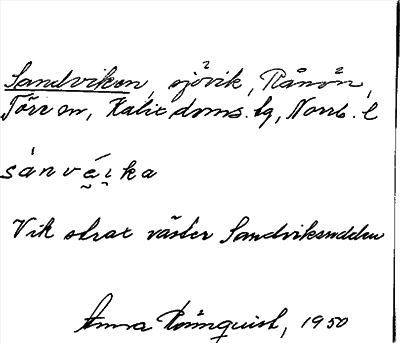 Sandviken, sjövik, Rånön,
Töre sn, Kalix doms.lg, Norrb. l
sanvéi̯ka
Vik strax väster Sandviksudden
Anna Rönnquist, 1950